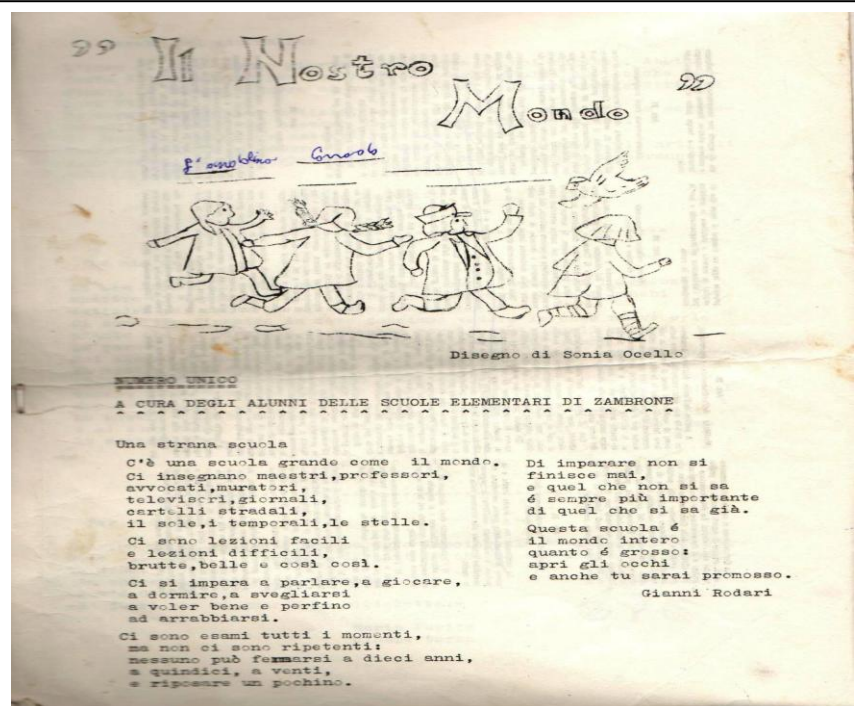 " Il Nostro
Mondo "
Disegno di Sonia Ocello
NUMERO UNICO
A CURA DEGLI ALUNNI DELLE SCUOLE ELEMENTARI DI ZAMBRONE
Una strana scuola
C'è una scuola grande come il mondo.
Ci insegnano maestri,professori,
avvocati,muratori,
televisori,giornali,
cartelli stradali,
il sole,i temporali,le stelle.
Ci sono lezioni facili
e lezioni difficili,
brutte,belle e così così.
Ci si impara a parlare,a giocare,
a dormire,a svegliarsi
a voler bene e perfino
ad arrabbiarsi.
Ci sono esami tutti i momenti,
ma non ci sono ripetenti:
nessuno può fermarsi a dieci anni,
a quindici, a venti,
e riposare un pochino.
Di imparare non si
finisce mai,
e quel che non si sa
é sempre più importante
di quel che si sa già.
Questa scuola é
il mondo intero
quanto é grosso:
apri gli occhi
e anche tu sarai promosso.
Gianni Rodari